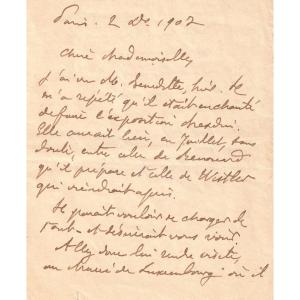 Paris. 2 Dc. 1902
Chère Mademoiselle,
J'ai vu M. Bénédite, hier. Il
m'a répété qu'il était enchanté
de faire l'exposition
Elle aurait lieu, en Juillet, sans
doute, entre celle de Renouard
qu'il prépare et celle de Wistler
qui viendrait après.
Il paraît vouloir se charger de
tout et désirerait vous voir.
Allez donc lui rendre visite,
au Musée du Luxembourg où il